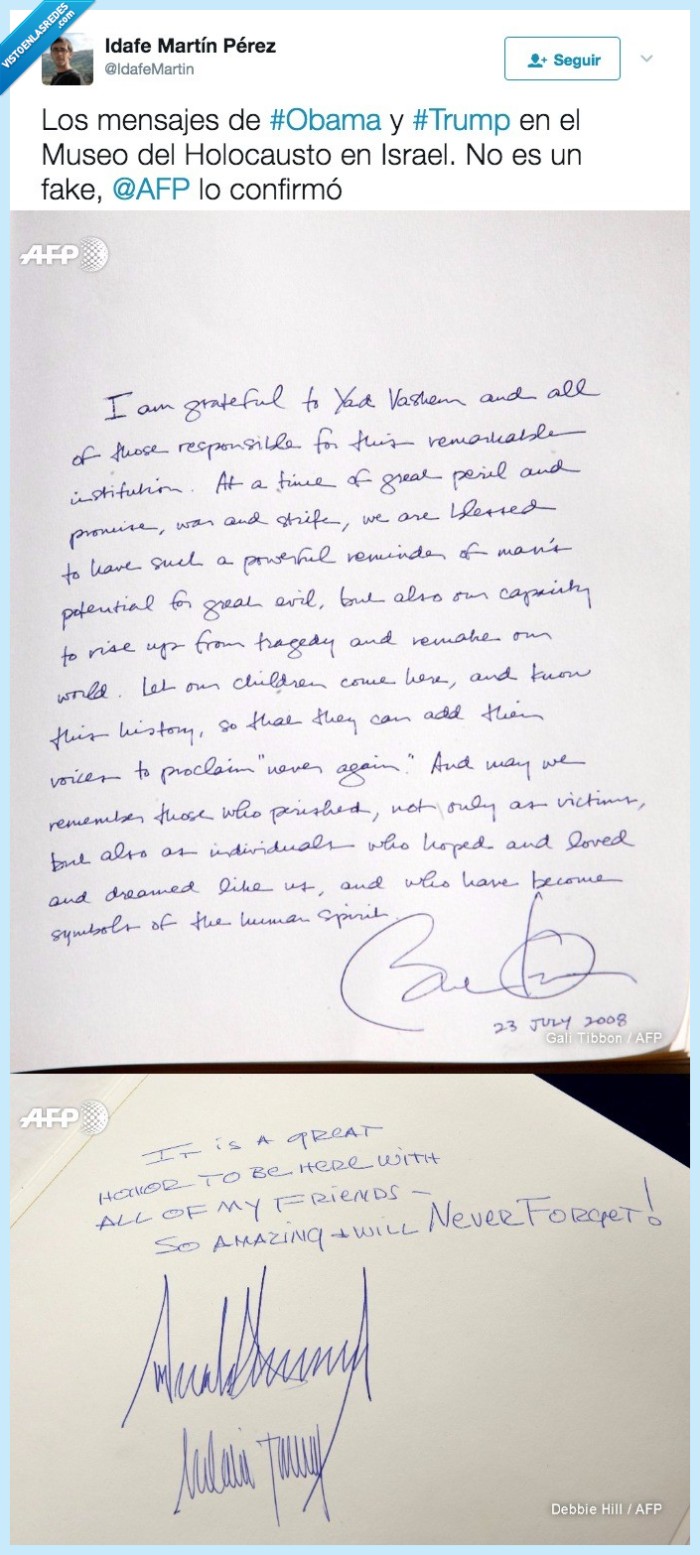 VISTOENLASREDES
.com
Idafe Martín Pérez
@IdafeMartin
Seguir
Los mensajes de #Obama y #Trump en el
Museo del Holocausto en Israel. No es un
fake, @AFP lo confirmó
AFP
I am grateful to Yad Vashem and all
of those responsible for this remarkable
institution. At a time of great peril and
promise, war and strife, we are blessed
to have such a powerful reminder of man's
potential for great evil, but also our capacity
to rise up from tragedy and remake our
world. Let our children come here, and know
this history, so that they can add their
voices to proclaim "never again." And may we
remember those who perished, not only as victims,
but also as individuals who hoped and loved
and dreamed like us, and who have become
symbols of the human spirit.
23 JULY 2008
Gali Tibbon / AFP
AFP
IT IS A GREAT
HONOR TO BE HERE WITH
ALL OF MY FRIENDS -
SO AMAZING + WILL NEVER FORGET!
Debbie Hill / AFP